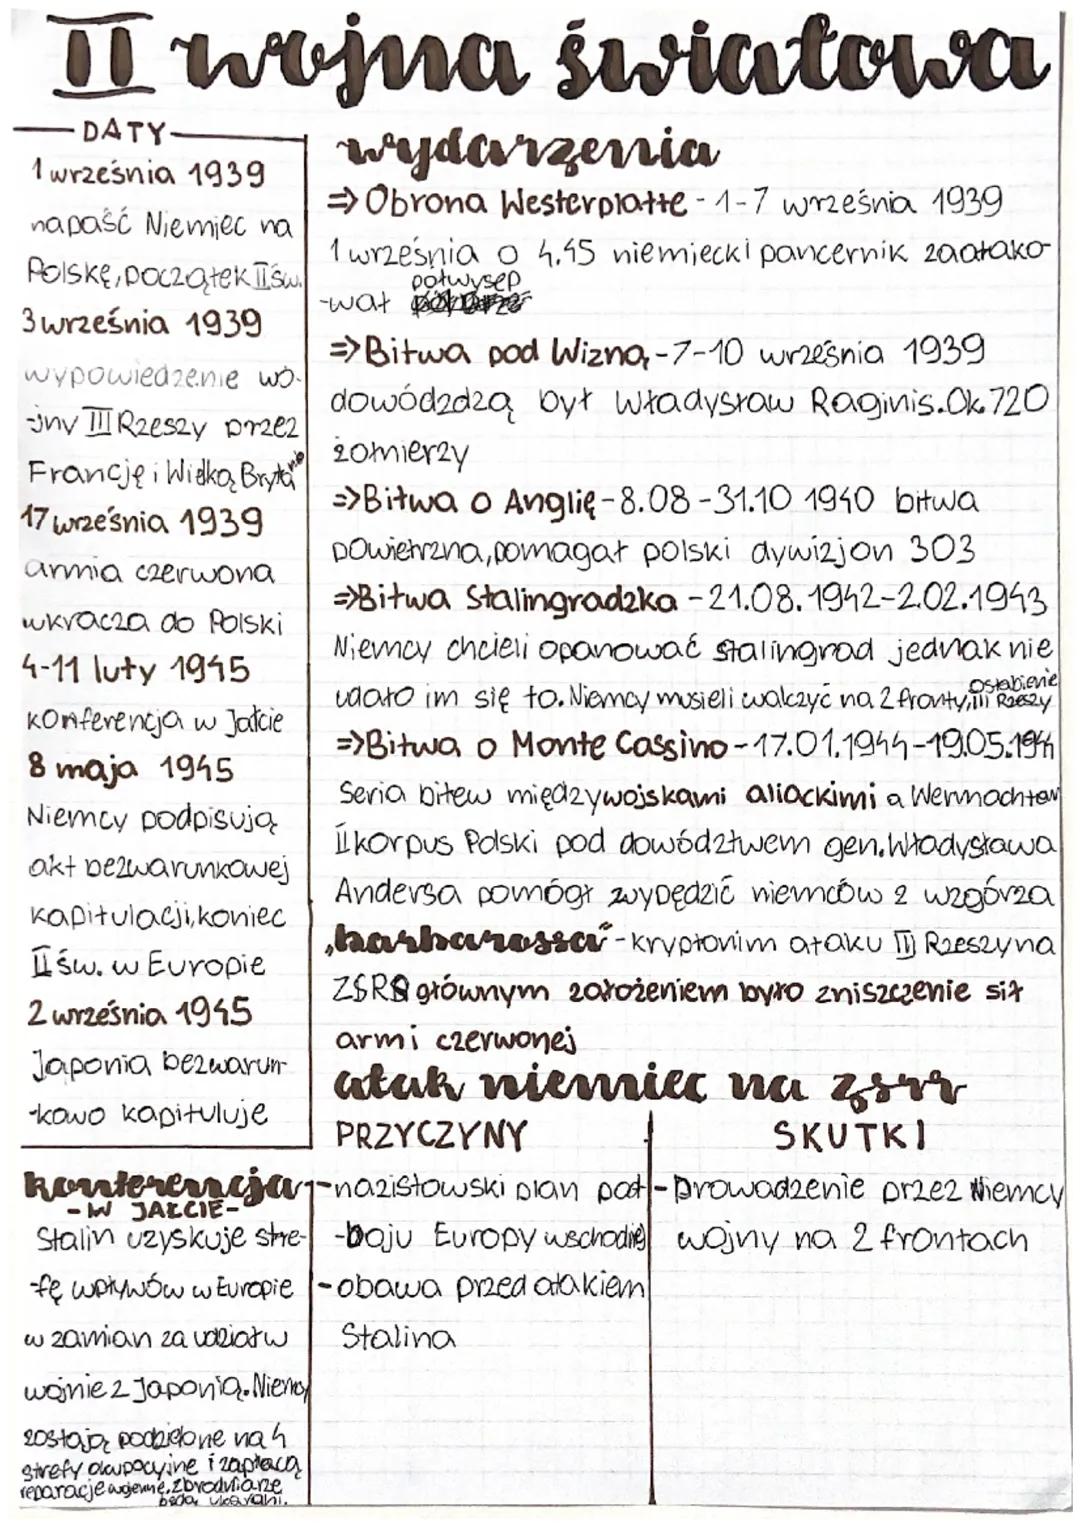 II wojna światowa
DATY
1 września 1939
napaść Niemiec na
Polskę, początek II św.
3 września 1939
wypowiedzenie wo-
-jny III Rzeszy przez
Francję i Wielką Brytanię
17 września 1939
armia czerwona
wkracza do Polski
4-11 luty 1945
konferencja w Jałcie
8 maja 1945
Niemcy podpisują
akt bezwarunkowej
kapitulacji, koniec
II św. w Europie
2 września 1945
Japonia bezwarun-
-kowo kapituluje
konferencja
- W JAŁCIE -
Stalin uzyskuje stre-
-fę wpływów w Europie
w zamian za udział w
wojnie z Japonią. Niemcy
zostają podzielone na 4
strefy okupacyjne i zapłacą
reparacje wojenne, zbrodniarze
będą ukarani.
wydarzenia
=> Obrona Westerplatte - 1-7 września 1939
1 września o 4.45 niemiecki pancernik zaatako-
-wał półwysep
=> Bitwa pod Wizną - 7-10 września 1939
dowódzdzą był Władysław Raginis. Ok. 720
żołnierzy
=> Bitwa o Anglię - 8.08 - 31.10 1940 bitwa
powietrzna, pomagał polski dywizjon 303
=> Bitwa Stalingradzka - 21.08.1942-2.02.1943
Niemcy chcieli opanować stalingrad jednak nie
udało im się to. Niemcy musieli walczyć na 2 fronty, osłabienie III Rzeszy
=> Bitwa o Monte Cassino - 17.01.1944-19.05.1944
Seria bitew między wojskami aliackimi a Wermachtem
II korpus Polski pod dowództwem gen. Władysława
Andersa pomógł wypędzić niemców z wzgórza
„barbarossa" - kryptonim ataku III Rzeszy na
ZSRR głównym założeniem było zniszczenie sił
armi czerwonej
atak niemiec na zsrr
PRZYCZYNY
- nazistowski plan pod-
-boju Europy wschodniej
- obawa przed atakiem
Stalina
SKUTKI
- Prowadzenie przez Niemcy
wojny na 2 frontach